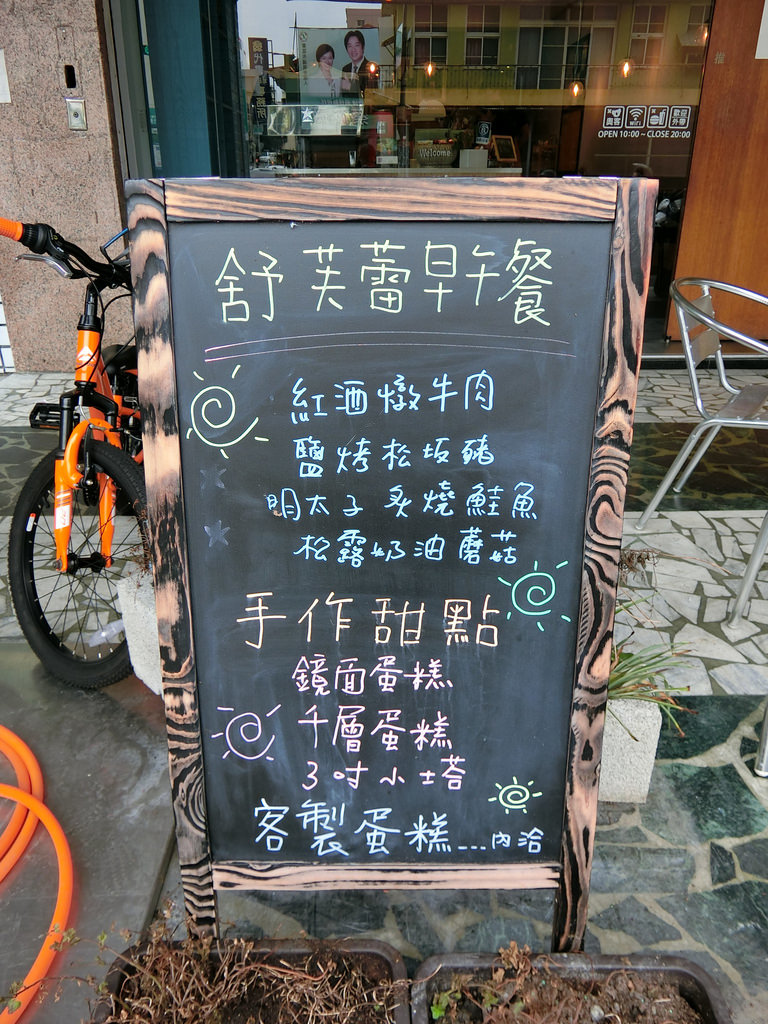 奧客
WiFi
歡迎外帶
OPEN 10:00~CLOSE 20:00
Welcome
舒芙蕾早午餐
紅酒燉牛肉
鹽烤松坂豬
明太子炙燒鮭魚
松露奶油蘑菇
手作甜點
鏡面蛋糕
千層蛋糕
3吋小塔
客製蛋糕...內洽